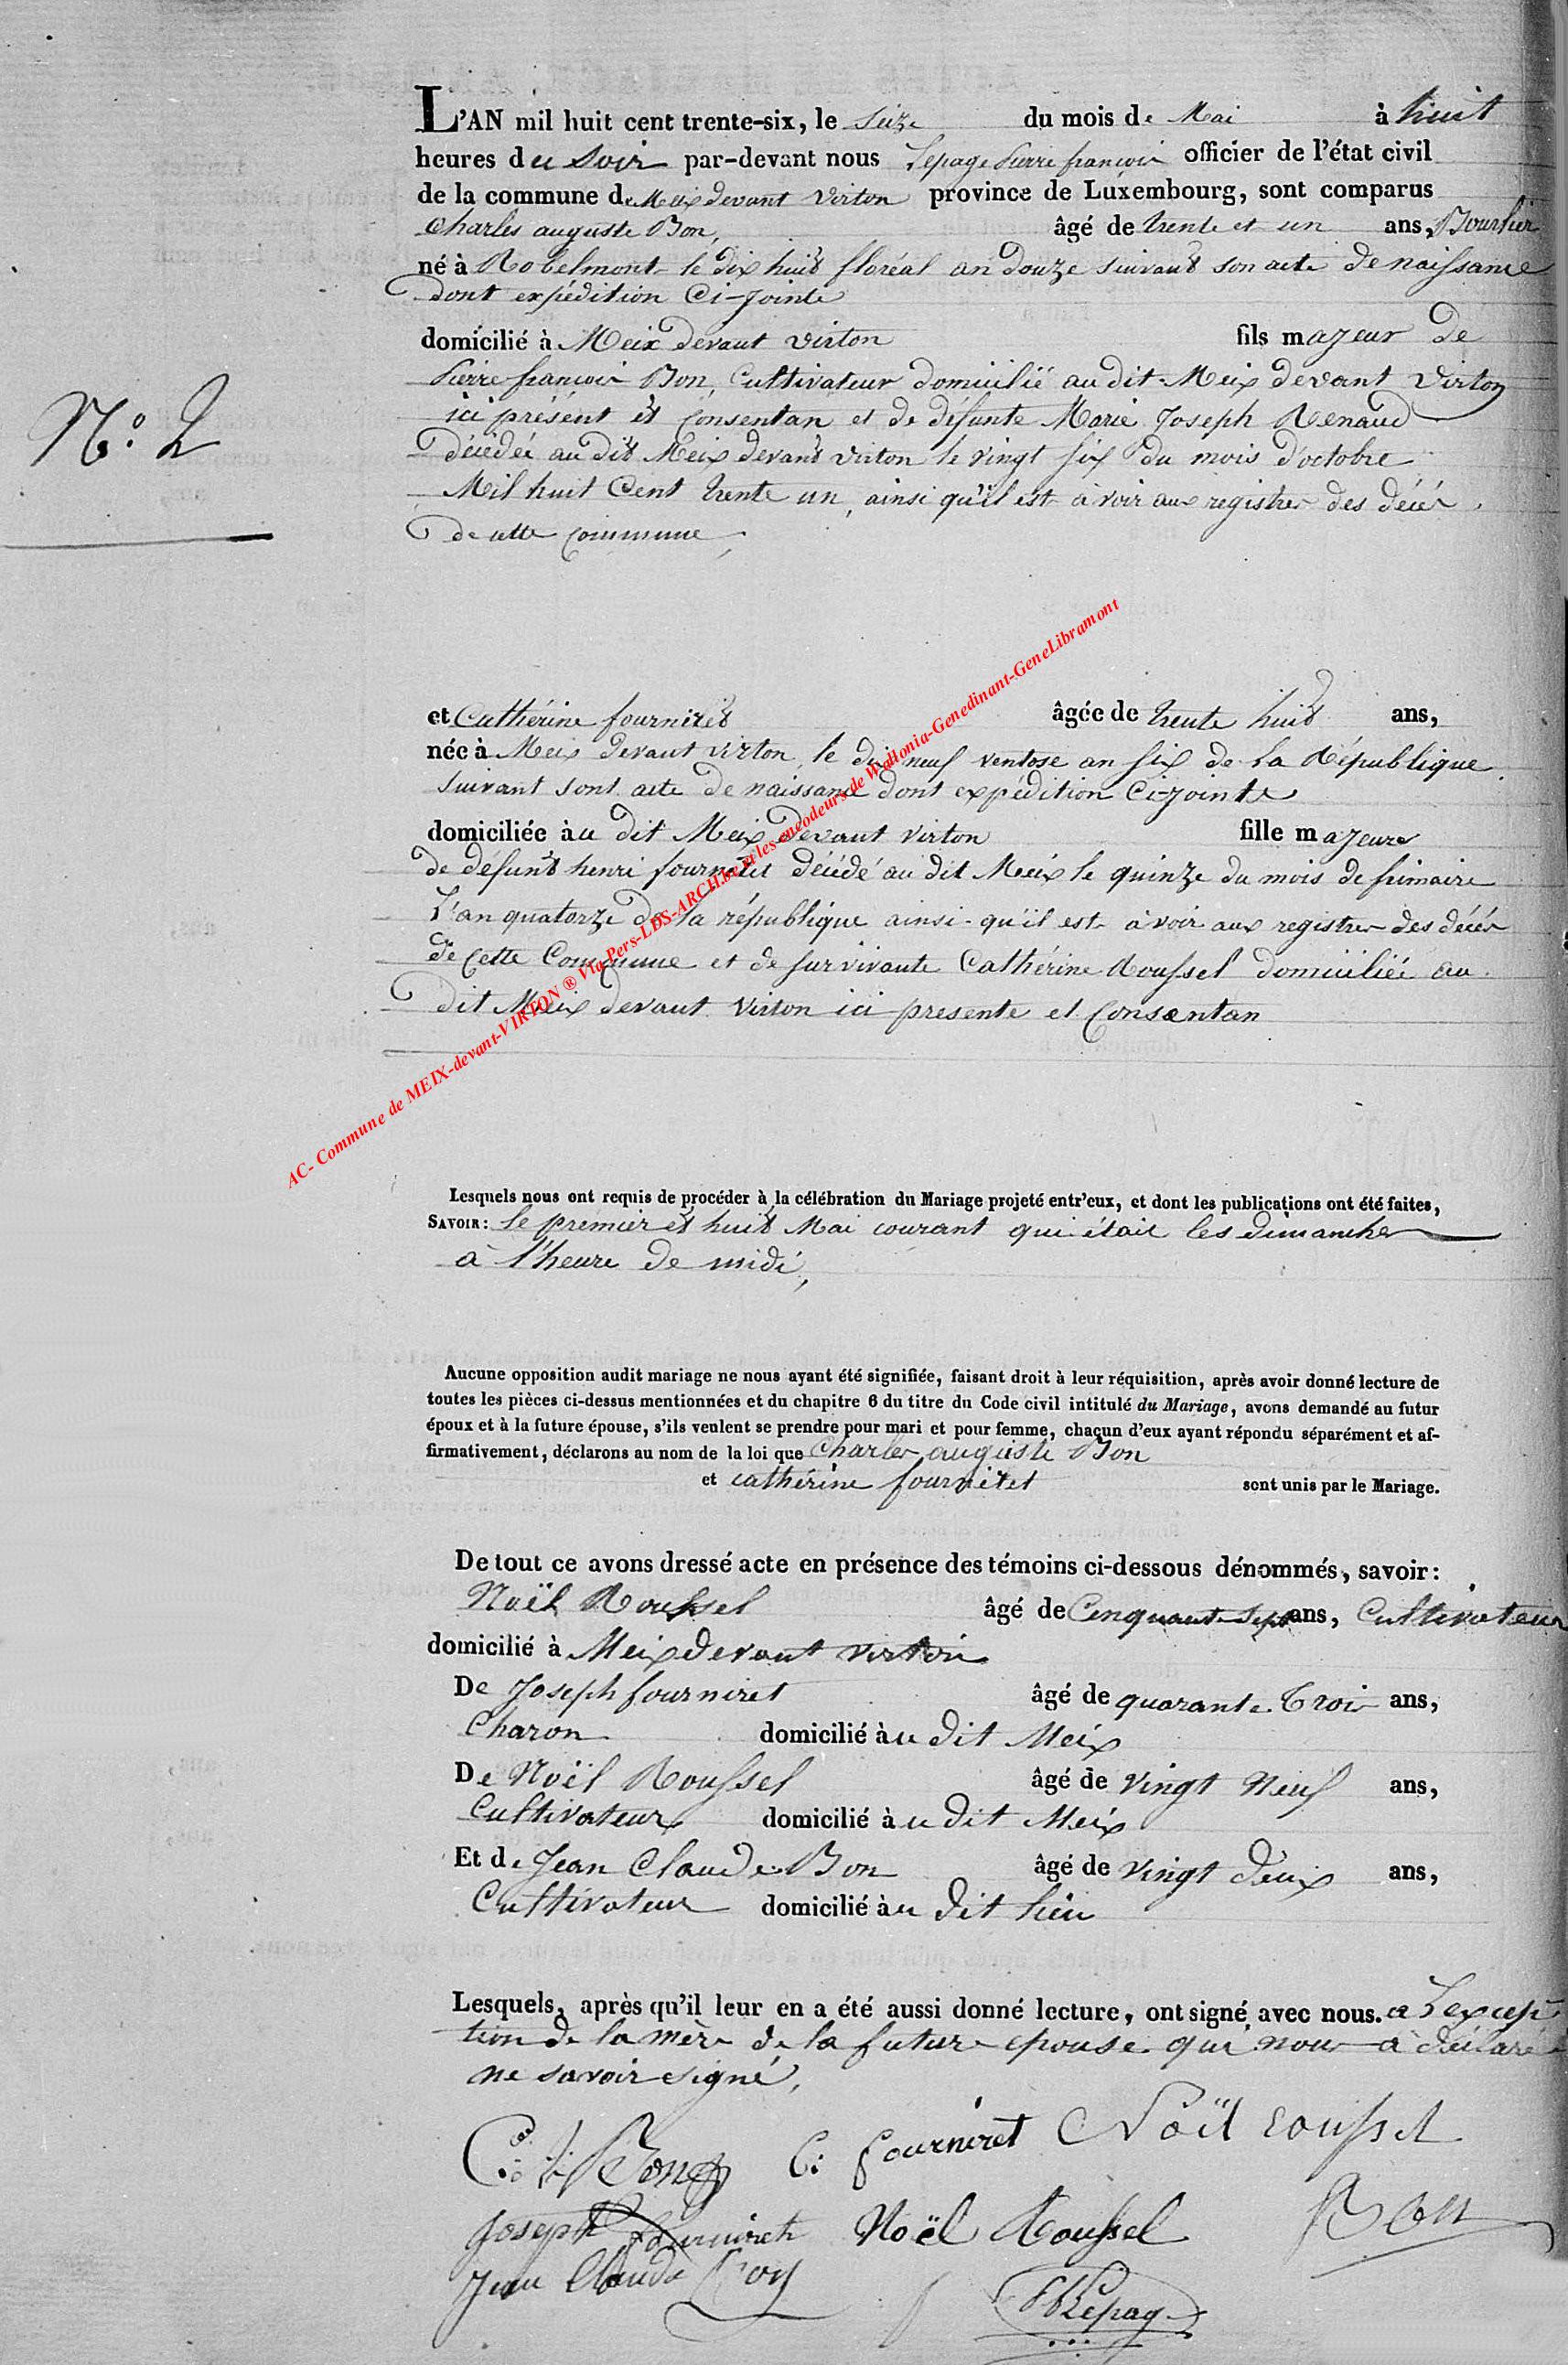 L'AN mil huit cent trente-six, le seize du mois de Mai à huit
heures du soir par-devant nous Lepage Pierre françois officier de l'état civil
de la commune de Meix devant Virton province de Luxembourg, sont comparus
Charles auguste Bon, âgé de trente et un ans, Bourlier
né à Robelmont le dix huit floréal an douze suivant son acte de naissance
dont expédition Ci-jointe
domicilié à Meix devant virton fils majeur de
Pierre françois Bon, Cultivateur domicilié au dit Meix devant Virton
ici présent et Consentan et de défunte Marie Joseph Renaud
décédée au dit Meix devant virton le vingt six du mois d'octobre
Mil huit Cent trente un, ainsi qu'il est à voir aux registres des décès
de cette commune,
N.º 2
et Cathérine fourniret âgée de trente huit ans,
née à Meix devant virton, le dix neuf ventose an six de la République
suivant sont acte de naissance dont expédition Ci-jointe
domiciliée au dit Meix devant virton fille majeure
de défunt henri fourniret décédé au dit Meix le quinze du mois de frimaire
l'an quatorze de la république ainsi qu'il est à voir aux registres des décés
de Cette Commune et de survivante Cathérine Roussel domiciliée au
dit Meix devant Virton ici presente et Consentan
AC- Commune de MEIX-devant-VIRTON ® Via Pers-LDS-ARCH.be et les encodeurs de Wallonia-Genedinant-GeneLibramont
Lesquels nous ont requis de procéder à la célébration du Mariage projeté entr'eux, et dont les publications ont été faites,
SAVOIR: le premier et huit Mai courant qui était les dimanches
à l'heure de midi,
Aucune opposition audit mariage ne nous ayant été signifiée, faisant droit à leur réquisition, après avoir donné lecture de
toutes les pièces ci-dessus mentionnées et du chapitre 6 du titre du Code civil intitulé du Mariage, avons demandé au futur
époux et à la future épouse, s'ils veulent se prendre pour mari et pour femme, chacun d'eux ayant répondu séparément et af-
firmativement, déclarons au nom de la loi que Charles auguste Bon
et cathérine fourniret sont unis par le Mariage.
De tout ce avons dressé acte en présence des témoins ci-dessous dénommés, savoir:
Noël Roussel âgé de Cenquante sept ans, Cultivateur
domicilié à Meix devant virton
De Joseph fourniret âgé de quarante Trois ans,
Charon domicilié au dit Meix
De Noël Roussel âgé de vingt Neuf ans,
Cultivateur domicilié au dit Meix
Et de Jean Claude Bon âgé de vingt deux ans,
Cultivateur domicilié au dit lieu
Lesquels, après qu'il leur en a été aussi donné lecture, ont signé avec nous. a l'excep
tion de la mère de la future epouse qui nous a déclaré
ne savoir signé,
C: A: Bon C: fourniret Noël roussel
Joseph fourniret Noël Roussel Bon
Jean Claude Bon
Lepage